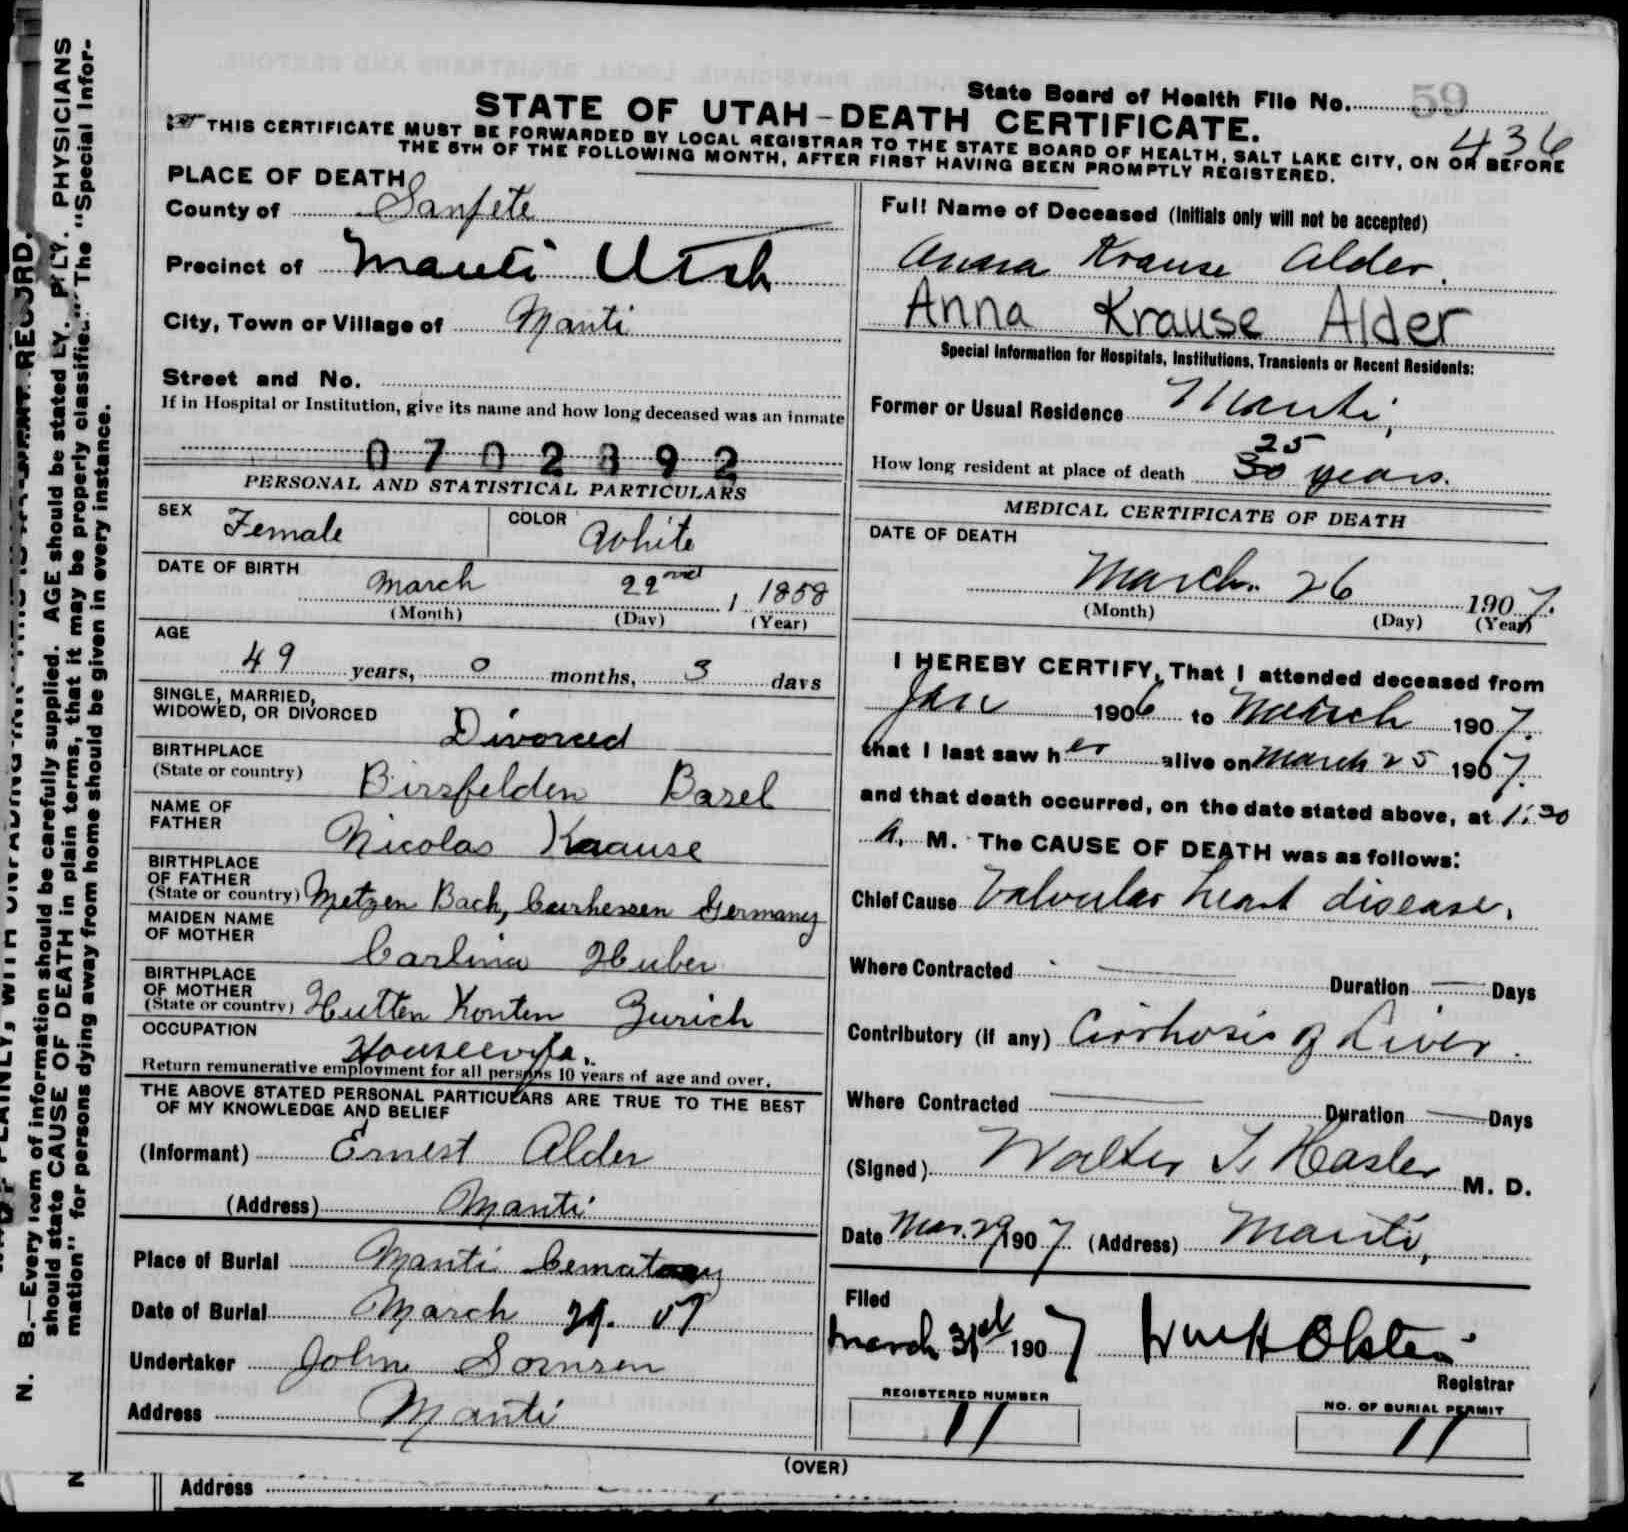 State Board of Health File No. 59
436
STATE OF UTAH-DEATH CERTIFICATE.
THIS CERTIFICATE MUST BE FORWARDED BY LOCAL REGISTRAR TO THE STATE BOARD OF HEALTH, SALT LAKE CITY, ON OR BEFORE
THE 5TH OF THE FOLLOWING MONTH, AFTER FIRST HAVING BEEN PROMPTLY REGISTERED.
PLACE OF DEATH
County of Sanpete
Precinct of Manti Utah
City, Town or Village of Manti
Street and No.
If in Hospital or Institution, give its name and how long deceased was an inmate
0702892
PERSONAL AND STATISTICAL PARTICULARS
SEX Female COLOR White
DATE OF BIRTH March 22nd, 1858
(Month) (Day) (Year)
AGE
49 years, 0 months, 3 days
SINGLE, MARRIED,
WIDOWED, OR DIVORCED Divorced
BIRTHPLACE
(State or country) Birsfelden Basel
NAME OF
FATHER Nicolas Krause
BIRTHPLACE
OF FATHER
(State or country) Metzen Bach, Curhessen Germany
MAIDEN NAME
OF MOTHER Carlina Huber
BIRTHPLACE
OF MOTHER
(State or country) Hutten Konten Zurich
OCCUPATION Housewife.
Return remunerative employment for all persons 10 years of age and over.
THE ABOVE STATED PERSONAL PARTICULARS ARE TRUE TO THE BEST
OF MY KNOWLEDGE AND BELIEF
(Informant) Ernest Alder
(Address) Manti
Place of Burial Manti Cematary
Date of Burial March 29. 07
Undertaker John Sornsen
Address Manti
Full Name of Deceased (Initials only will not be accepted)
Anna Krause Alder.
Anna Krause Alder
Special Information for Hospitals, Institutions, Transients or Recent Residents:
Former or Usual Residence Manti,
25
How long resident at place of death 30 years.
MEDICAL CERTIFICATE OF DEATH
DATE OF DEATH
March 26 1907.
(Month) (Day) (Year)
I HEREBY CERTIFY, That I attended deceased from
Jan 1906 to March 1907.
that I last saw her alive on March 25 1907.
and that death occurred, on the date stated above, at 1:30
A. M. The CAUSE OF DEATH was as follows:
Chief Cause Valvular heart disease.
Where Contracted Duration Days
Contributory (if any) Cirrhosis of Liver.
Where Contracted Duration Days
(Signed) Walter T. Hasler M. D.
Date Mar. 29 1907. (Address) Manti,
Filed
March 31st 1907 Wm H Olsten
Registrar
REGISTERED NUMBER
11
NO. OF BURIAL PERMIT
11
(OVER)
Address
N. B.—Every item of information should be carefully supplied. AGE should be stated PHYSICIANS
should state CAUSE OF DEATH in plain terms, that it may be properly classified. The "Special Infor-
mation" for persons dying away from home should be given in every instance.
N